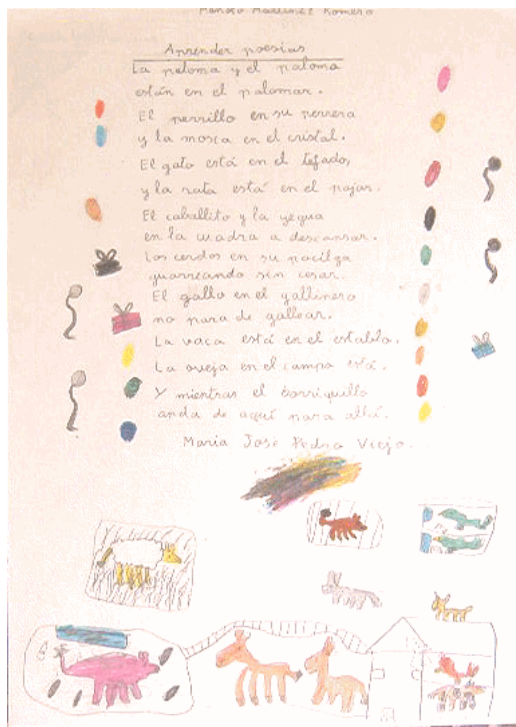 Manolo Martínez Romero
Aprender poesias
La paloma y el palomo
están en el palomar.
El perrillo en su perrera
y la mosca en el cristal.
El gato está en el tejado,
y la rata está en el pajar.
El caballito y la yegua
en la cuadra a descansar.
Los cerdos en su pocilga
guarreando sin cesar.
El gallo en el gallinero
no para de gallear.
La vaca está en el establo.
La oveja en el campo está.
Y mientras el borriquillo
anda de aquí para allí.
Maria Jose Pedra Viejo.